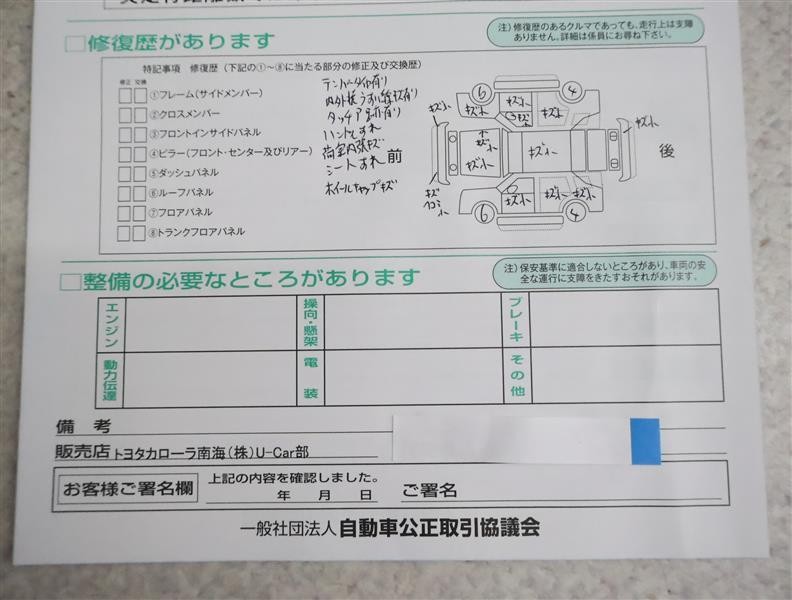 注）修復歴のあるクルマであっても、走行上は支障
ありません。詳細は係員にお尋ね下さい。
□修復歴があります
特記事項 修復歴（下記の①～⑧に当たる部分の修正及び交換歴）
修正 交換
①フレーム（サイドメンバー）
②クロスメンバー
③フロントインサイドパネル
④ピラー（フロント・センター及びリアー）
⑤ダッシュパネル
⑥ルーフパネル
⑦フロアパネル
⑧トランクフロアパネル
テンパータイヤ有り
内外装うすい線キズ有り
ハンドルすれ
荷室内張キズ
シートすれ
ホイールキャップキズ
前
後
キズ小
⑥
④
キズ小
キズ小
キズ小
キズ小
キズ小
キズ小
キズ小
キズ
小
キズ小
キズ小
キズ小
⑥
④
□整備の必要なところがあります
注）保安基準に適合しないところがあり、車両の安
全な運行に支障をきたすおそれがあります。
エンジン
操向・懸架
ブレーキ
動力伝達
電装
その他
備考
販売店 トヨタカローラ南海（株）U-Car部
お客様ご署名欄
上記の内容を確認しました。
年 月 日 ご署名
一般社団法人 自動車公正取引協議会